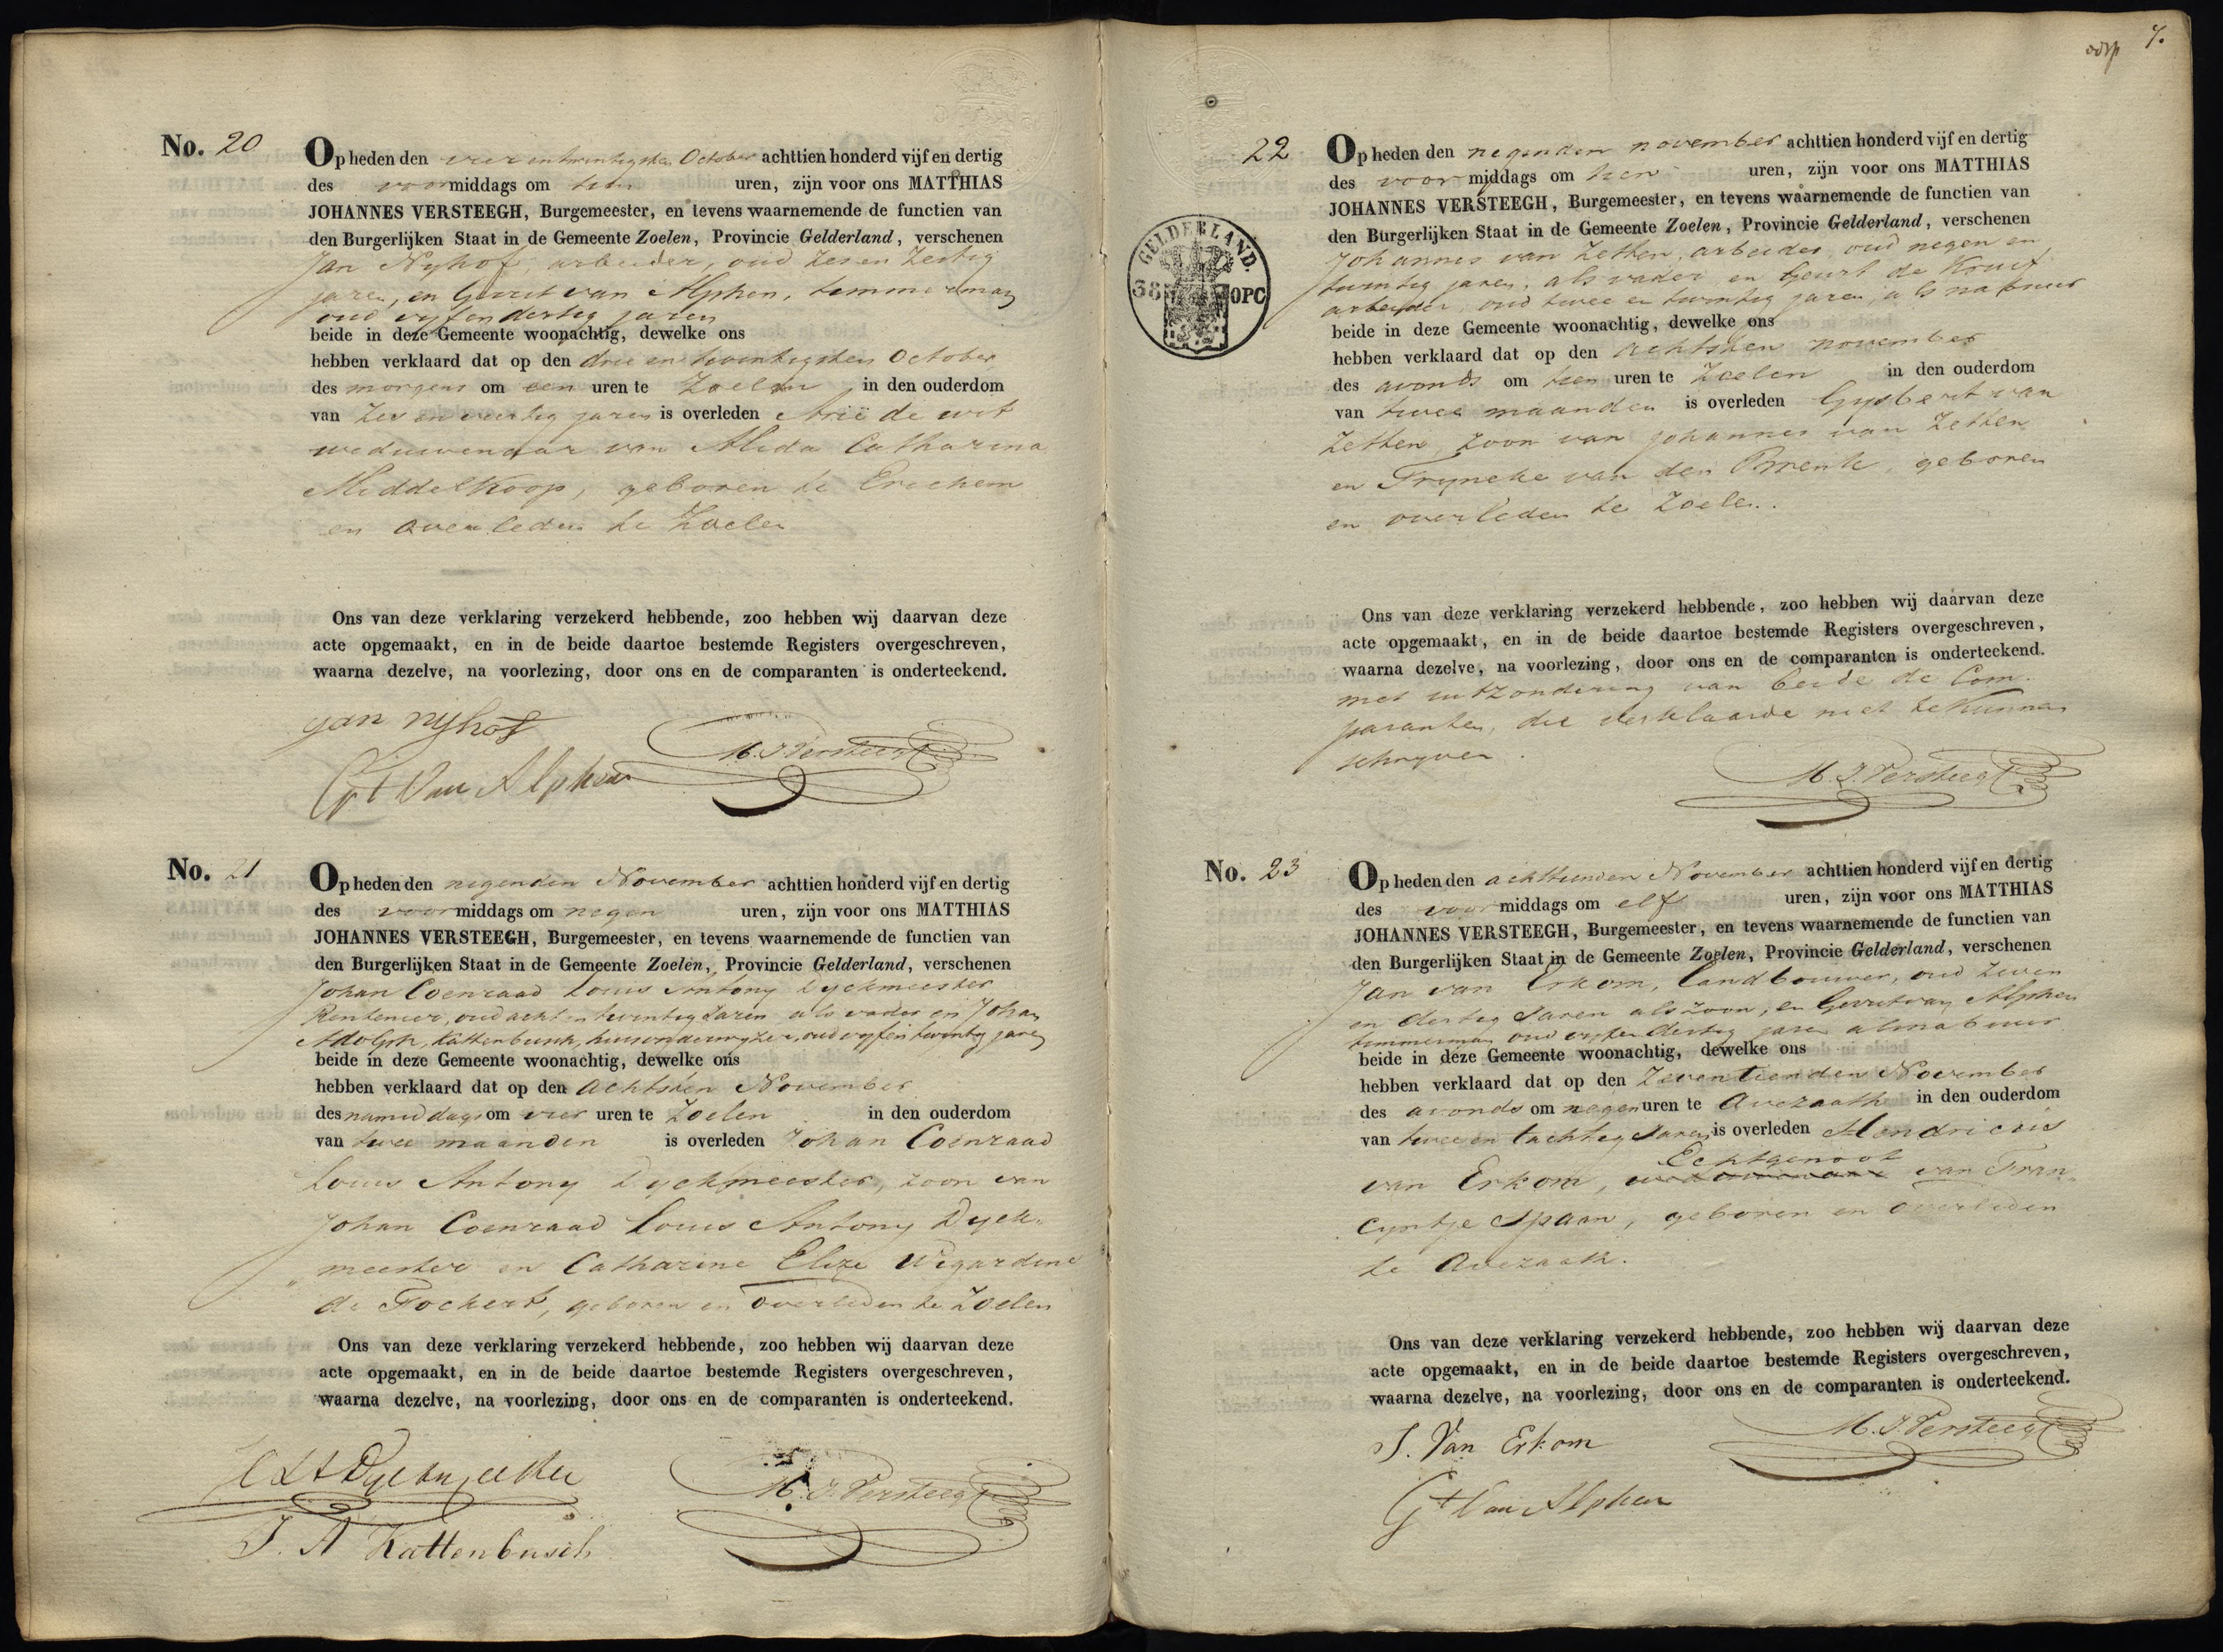 No. 20
Op heden den vier en twintigsten October achttien honderd vijf en dertig
des voormiddags om tien uren, zijn voor ons MATTHIAS
JOHANNES VERSTEEGH, Burgemeester, en tevens waarnemende de functien van
den Burgerlijken Staat in de Gemeente Zoelen, Provincie Gelderland, verschenen
Jan Nyhof arbeider, oud zes en zestig
jaren, en Gerrit van Alphen, timmerman
oud vyf en dertig jaren
beide in deze Gemeente woonachtig, dewelke ons
hebben verklaard dat op den drie en twintigsten October
des morgens om een uren te Zoelen in den ouderdom
van zes en veertig jaren is overleden Arie de wit
weduwenaar van Alida Catharina
Middelkoop, geboren te Erichem
en overleden te Zoelen
Ons van deze verklaring verzekerd hebbende, zoo hebben wij daarvan deze
acte opgemaakt, en in de beide daartoe bestemde Registers overgeschreven,
waarna dezelve, na voorlezing, door ons en de comparanten is onderteekend.
Jan nyhof
M. J. Versteegh
Gt Van Alphen
No. 21
Op heden den negenden November achttien honderd vijf en dertig
des voormiddags om negen uren, zijn voor ons MATTHIAS
JOHANNES VERSTEEGH, Burgemeester, en tevens waarnemende de functien van
den Burgerlijken Staat in de Gemeente Zoelen, Provincie Gelderland, verschenen
Johan Coenraad Louis Antony Dyckmeester
Rentenier, oud acht en twintig Jaren als vader en Johan
Adolph, Kattenbusch, huisonderwyzer, oud vyf en twintig jaren
beide in deze Gemeente woonachtig, dewelke ons
hebben verklaard dat op den achtsten November
des namiddags om vier uren te Zoelen in den ouderdom
van twee maanden is overleden Johan Coenraad
Louis Antony Dyckmeester, zoon van
Johan Coenraad Louis Antony Dyck-
meester en Catharine Elize Wigardine
de Fockert, geboren en overleden te Zoelen
Ons van deze verklaring verzekerd hebbende, zoo hebben wij daarvan deze
acte opgemaakt, en in de beide daartoe bestemde Registers overgeschreven,
waarna dezelve, na voorlezing, door ons en de comparanten is onderteekend.
Dyckmeester
M. J. Versteegh
J. A Kattenbusch
7.
22
GELDERLAND.
38 OPC
Op heden den negenden november achttien honderd vijf en dertig
des voormiddags om tien uren, zijn voor ons MATTHIAS
JOHANNES VERSTEEGH, Burgemeester, en tevens waarnemende de functien van
den Burgerlijken Staat in de Gemeente Zoelen, Provincie Gelderland, verschenen
Johannes van Zetten, arbeider, oud negen en
twintig jaren, als vader en Geurt de Kruif
arbeider, oud twee en twintig jaren als nabuur
beide in deze Gemeente woonachtig, dewelke ons
hebben verklaard dat op den achtsten november
des avonds om tien uren te Zoelen in den ouderdom
van twee maanden is overleden Gysbert van
Zetten, zoon van Johannes van Zetten
en Tryneke van den Brenk, geboren
en overleden te Zoelen.
Ons van deze verklaring verzekerd hebbende, zoo hebben wij daarvan deze
acte opgemaakt, en in de beide daartoe bestemde Registers overgeschreven,
waarna dezelve, na voorlezing, door ons en de comparanten is onderteekend.
met uitzondering van beide de Com-
paranten, die verklaarde niet te kunnen
schryven.
M. J. Versteegh
No. 23
Op heden den achttienden November achttien honderd vijf en dertig
des voormiddags om elf uren, zijn voor ons MATTHIAS
JOHANNES VERSTEEGH, Burgemeester, en tevens waarnemende de functien van
den Burgerlijken Staat in de Gemeente Zoelen, Provincie Gelderland, verschenen
Jan van Erkom, landbouwer, oud zeven
en dertig Jaren als zoon, en Gerrit van Alphen
timmerman oud vyf en dertig jaren als nabuur
beide in deze Gemeente woonachtig, dewelke ons
hebben verklaard dat op den Zeventienden November
des avonds om negen uren te Avezaath in den ouderdom
van twee en tachtig Jaren is overleden Hendricus
Echtgenoot
van Erkom, van Fran-
cyntje Spaan, geboren en overleden
te Avezaath.
Ons van deze verklaring verzekerd hebbende, zoo hebben wij daarvan deze
acte opgemaakt, en in de beide daartoe bestemde Registers overgeschreven,
waarna dezelve, na voorlezing, door ons en de comparanten is onderteekend.
J. Van Erkom
M. J. Versteegh
Gt Van Alphen